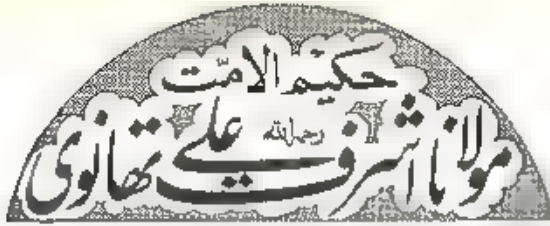 حکیم الامت
مولانا اشرف علی تھانوی رحمہ اللہ